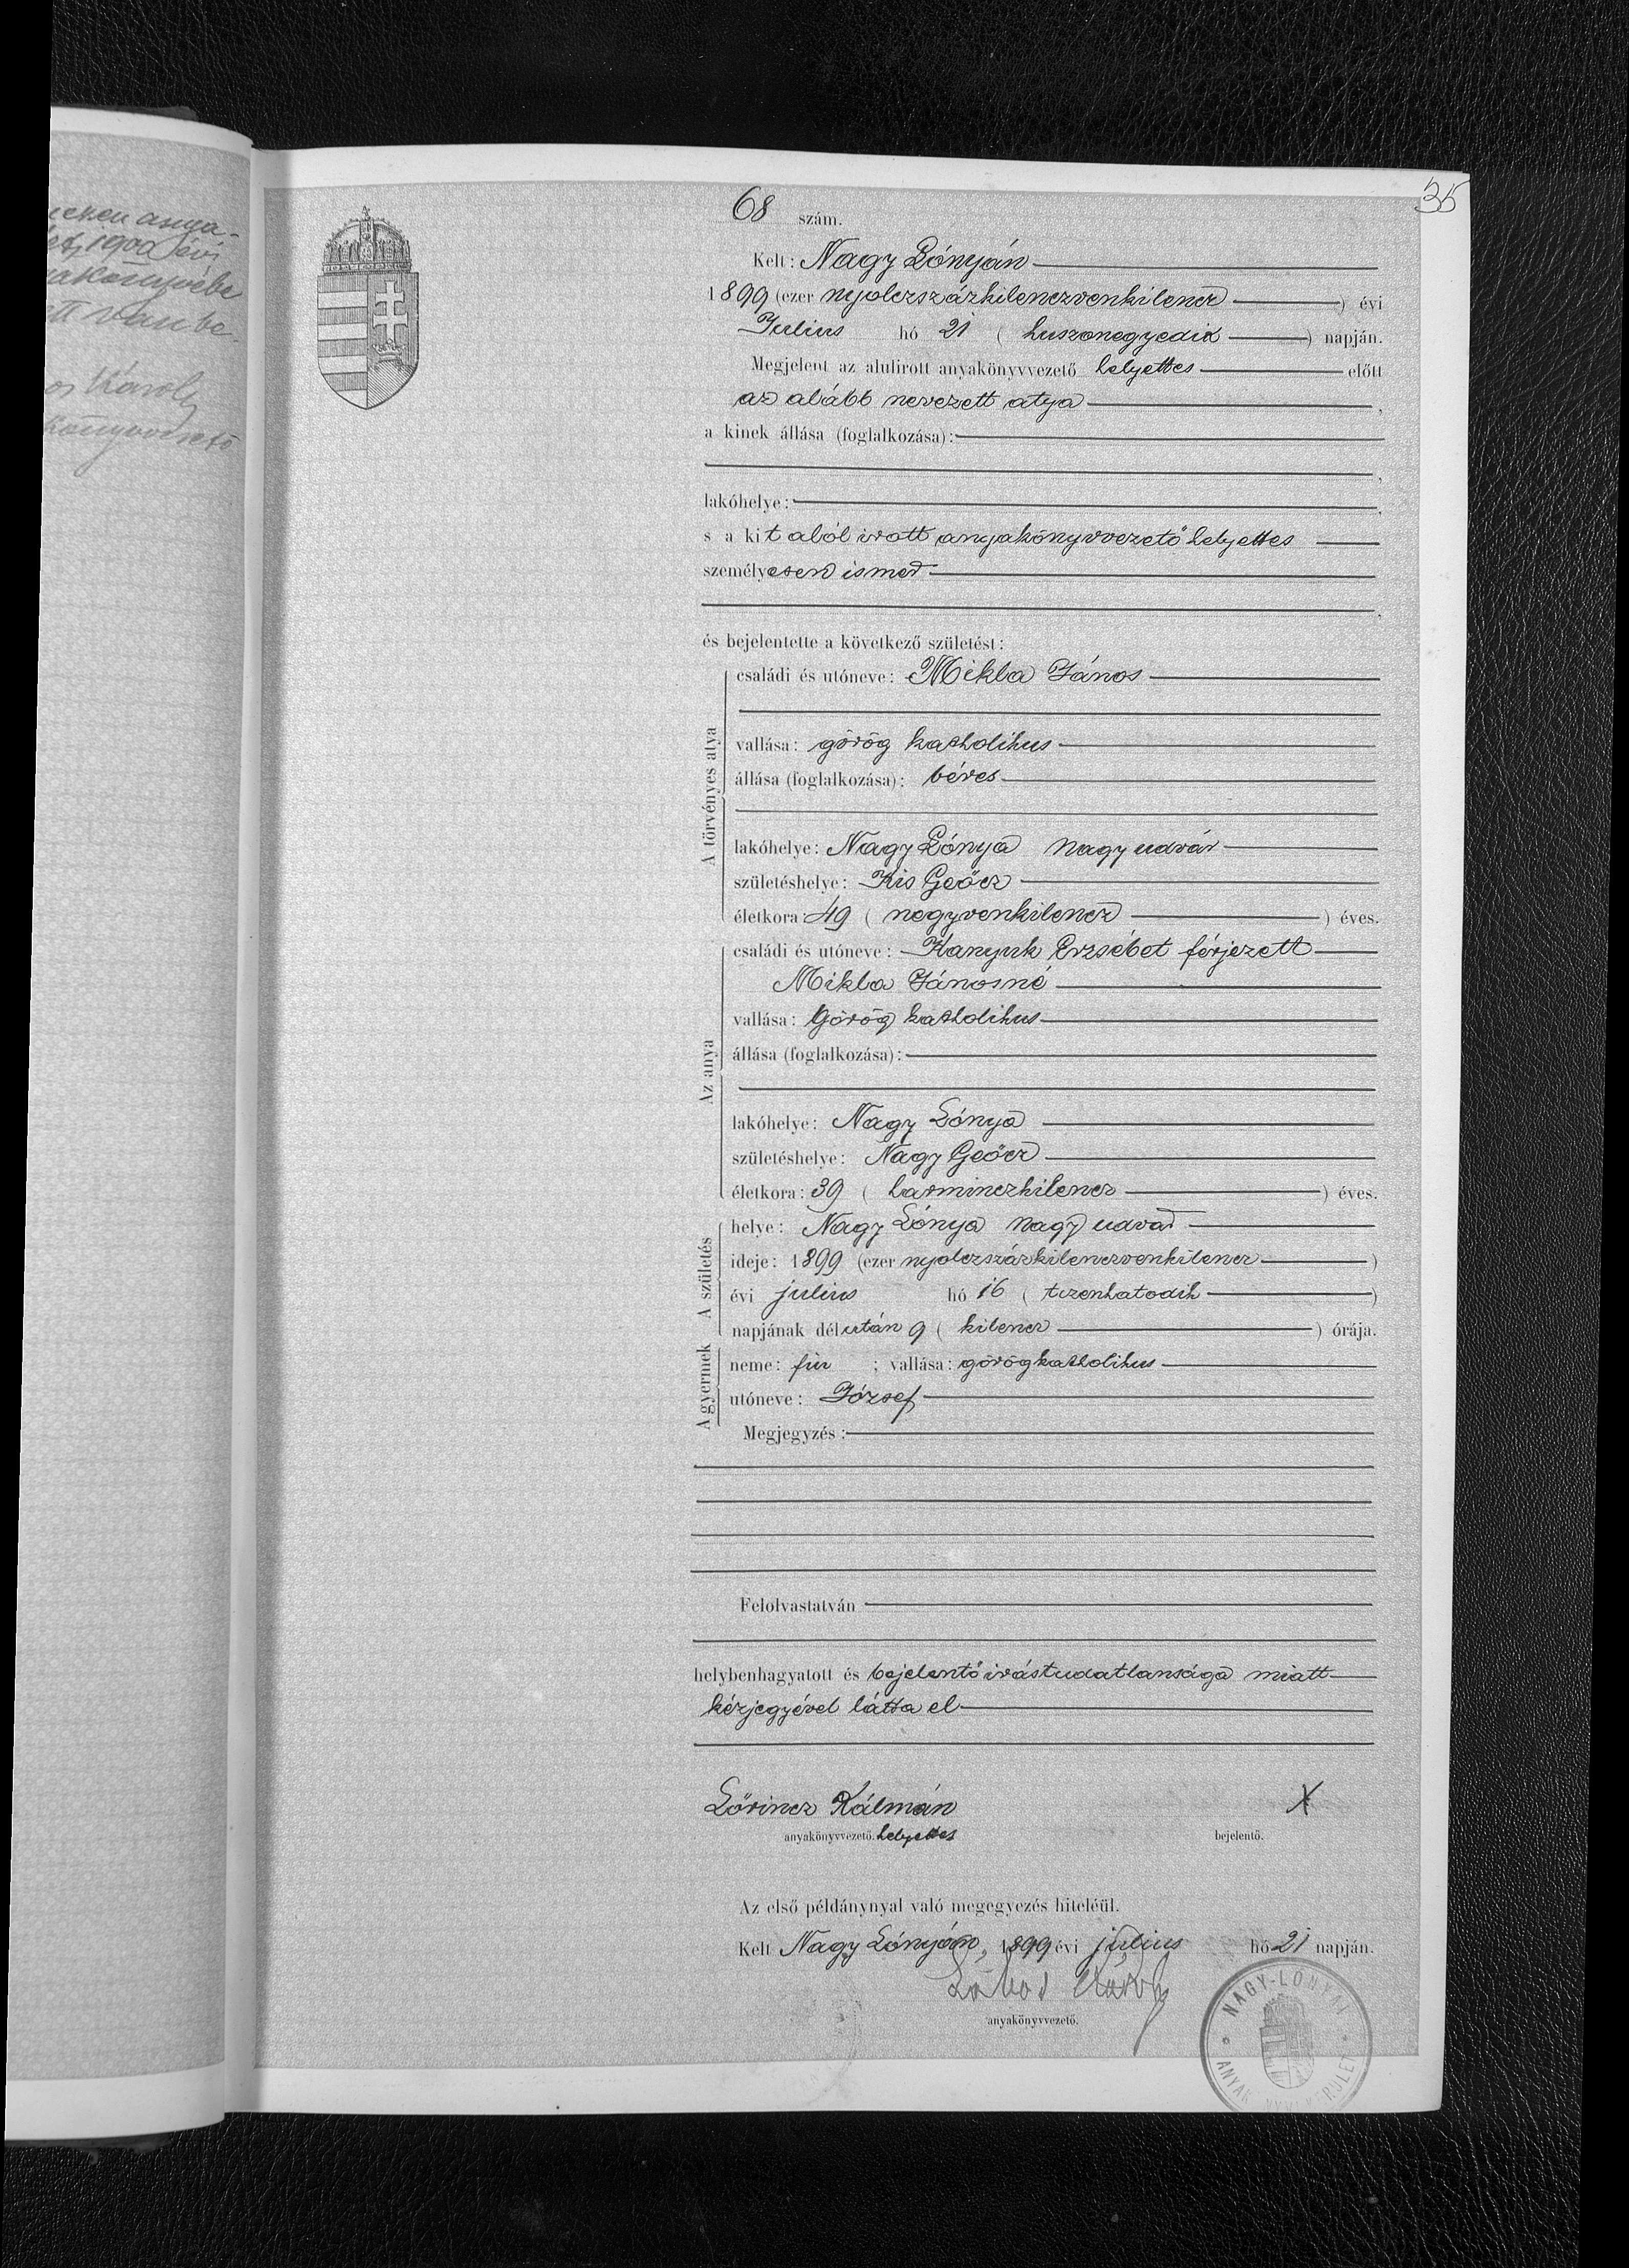 35
68 szám.
Kelt: Nagy Lónyán
1899 (ezer nyolczszázkilenczvenkilencz) évi
Julius hó 21 (huszonegyedik) napján.
Megjelent az alulirott anyakönyvvezető helyettes előtt
az alább nevezett atya,
a kinek állása (foglalkozása):
lakóhelye:
s a kit alól irott anyakönyvvezető helyettes
személyesen ismer
és bejelentette a következő születést:
A törvényes atya
családi és utóneve: Mikla János
vallása: görög katholikus
állása (foglalkozása): béres
lakóhelye: Nagy Lónya nagy udvar
születéshelye: Kis Geőcz
életkora: 49 (negyvenkilencz) éves.
Az anya
családi és utóneve: Hanyuk Erzsébet férjezett
Mikla Jánosné
vallása: Görög katholikus
állása (foglalkozása):
lakóhelye: Nagy Lónya
születéshelye: Nagy Geőcz
életkora: 39 (harminczkilencz) éves.
A születés
helye: Nagy Lónya nagy udvar
ideje: 1899 (ezer nyolczszázkilenczvenkilencz)
évi julius hó 16 (tizenhatodik)
napjának délután 9 (kilencz) órája.
A gyermek
neme: fiu; vallása: görögkatholikus
utóneve: József
Megjegyzés:
Felolvastatván
helybenhagyatott és bejelentő irástudatlansága miatt
kézjegyével látta el
Lőrincz Kálmán X
anyakönyvvezető. helyettes bejelentő.
Az első példánynyal való megegyezés hiteléül.
Kelt Nagy Lónyán, 1899 évi julius hó 21 napján.
anyakönyvvezető.
NAGY-LÓNYAI
1900 évi
Károly